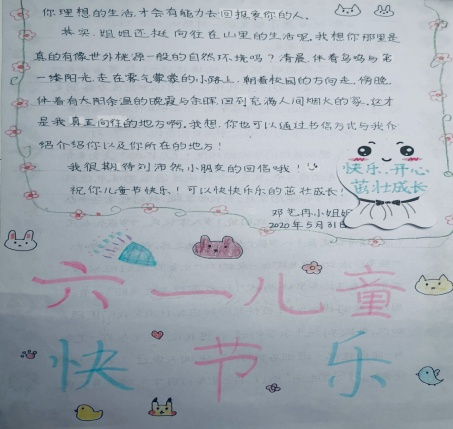 你理想的生活,才会有能力去回报爱你的人。
其实,姐姐还挺向往在山里的生活呢。我想你那里是
真的有像世外桃源一般的自然环境吗?清晨伴着鸟鸣与第
一缕阳光,走在雾气蒙蒙的小路上,朝着校园的方向走。傍晚,
伴着有太阳余温的晚霞与余晖回到充满人间烟火的家。这才
是我真正向往的地方啊。我想,你也可以通过书信方式与我介
绍介绍你以及你所在的地方!
我很期待刘沛然小朋友的回信哦!
祝你儿童节快乐!可以快快乐乐的茁壮成长!
快乐、开心
茁壮成长
邓艺冉小姐姐
2020年5月31日
六一儿童
快节乐